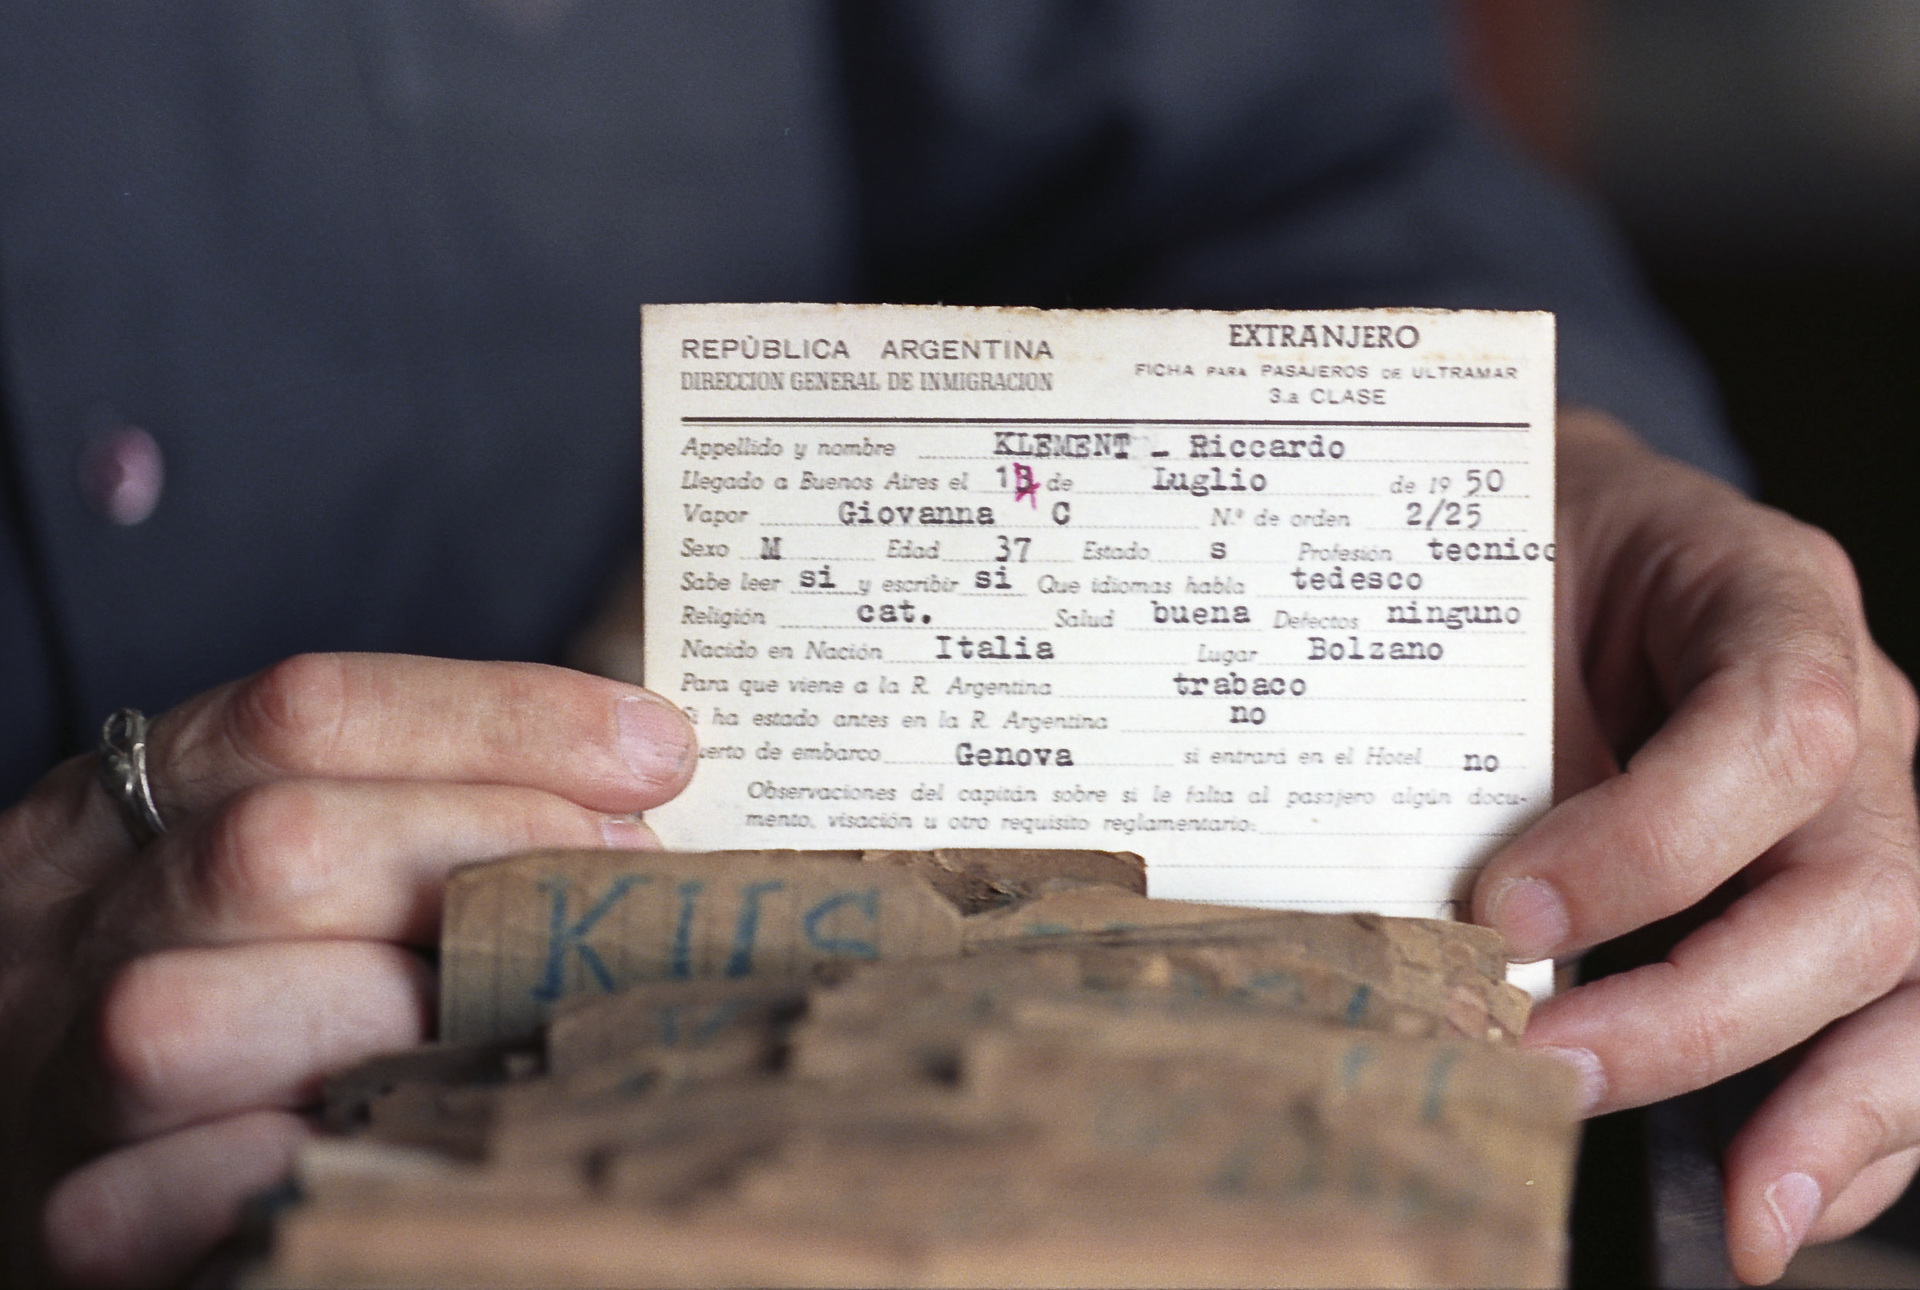 REPÙBLICA ARGENTINA
DIRECCION GENERAL DE INMIGRACION
EXTRANJERO
FICHA PARA PASAJEROS DE ULTRAMAR
3.a CLASE
Appellido y nombre KLEMENT - Riccardo
Llegado a Buenos Aires el 1 de Luglio de 19 50
Vapor Giovanna C N.º de orden 2/25
Sexo M Edad 37 Estado s Profesión tecnico
Sabe leer si y escribir si Que idiomas habla tedesco
Religión cat. Salud buena Defectos ninguno
Nacido en Nación Italia Lugar Bolzano
Para que viene a la R. Argentina trabaco
Si ha estado antes en la R. Argentina no
uerto de embarco Genova si entrará en el Hotel no
Observaciones del capitán sobre si le falta al pasajero algún docu-
mento, visación u otro requisito reglamentario: